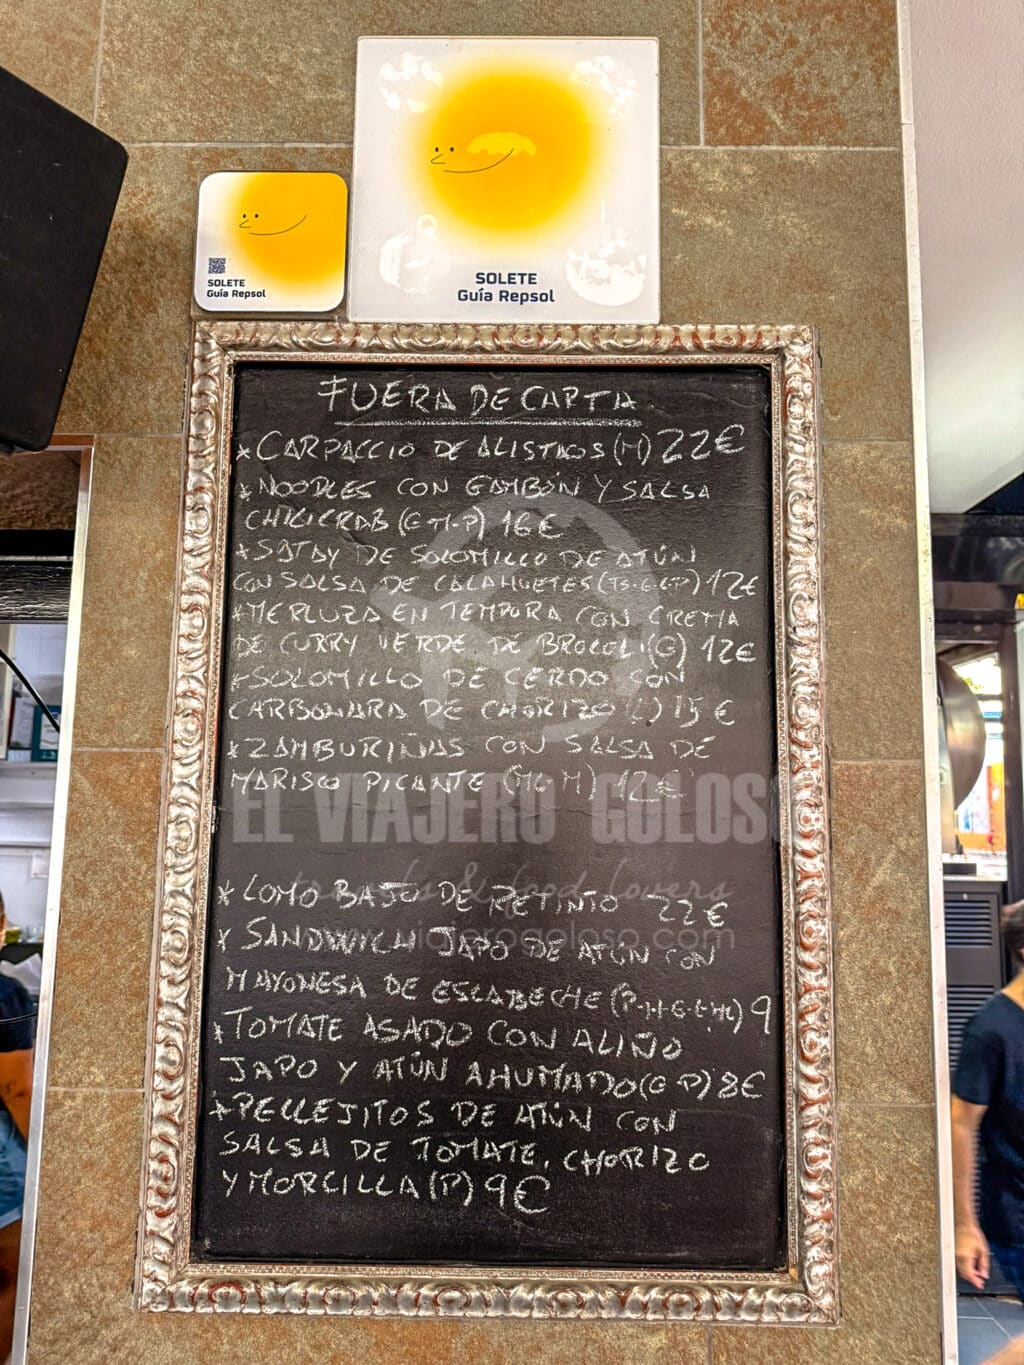 SOLETE
Guía Repsol
SOLETE
Guía Repsol
FUERA DE CARTA
*CARPACCIO DE ALISTADOS (M) 22€
*NOODLES CON GAMBÓN Y SALSA
CHILICRAB (G-M-P) 16€
*SATAY DE SOLOMILLO DE ATÚN
CON SALSA DE CACAHUETES 12€
*MERLUZA EN TEMPURA CON CREMA
DE CURRY VERDE DE BROCOLI (G) 12€
*SOLOMILLO DE CERDO CON
CARBONARA DE CHORIZO (L) 15€
*ZAMBURIÑAS CON SALSA DE
MARISCO PICANTE (MO M) 12€
EL VIAJERO GOLOSO
travels & food lovers
*LOMO BAJO DE RETINTO 22€
www.viajerogoloso.com
*SANDWICH JAPO DE ATÚN CON
MAYONESA DE ESCABECHE 9
*TOMATE ASADO CON ALIÑO
JAPO Y ATÚN AHUMADO (G P) 8€
*PELLEJITOS DE ATÚN CON
SALSA DE TOMATE, CHORIZO
Y MORCILLA (P) 9€